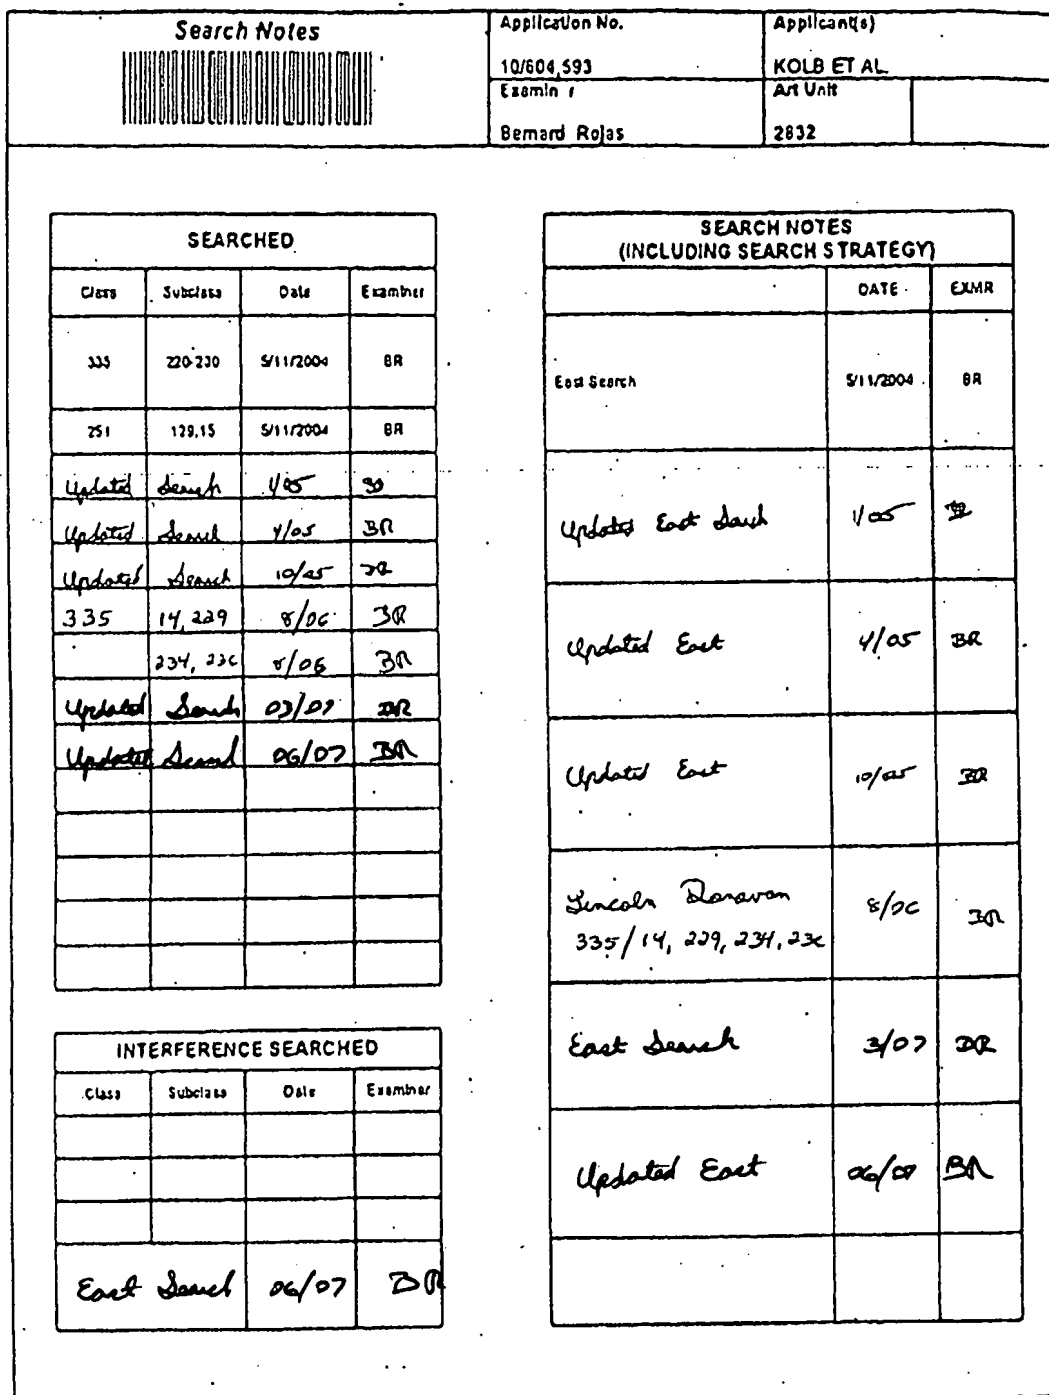 Search Notes
Application No.
Applicant(s)
10/604,593
KOLB ET AL.
Examiner
Art Unit
Bernard Rojas
2832
SEARCHED
Class Subclass Date Examiner
335 220-230 5/11/2004 BR
251 129.15 5/11/2004 BR
Updated Search 1/05 BR
Updated Search 4/05 BR
Updated Search 10/05 BR
335 14, 229 8/06 BR
234, 236 8/06 BR
Updated Search 03/07 BR
Updated Search 06/07 BR
INTERFERENCE SEARCHED
Class Subclass Date Examiner
East Search 06/07 BR
SEARCH NOTES
(INCLUDING SEARCH STRATEGY)
DATE EXMR
East Search 5/11/2004 BR
Updated East Search 1/05 BR
Updated East 4/05 BR
Updated East 10/05 BR
Lincoln Donovan 8/06 BR
335/14, 229, 234, 236
East Search 3/07 BR
Updated East 06/07 BR